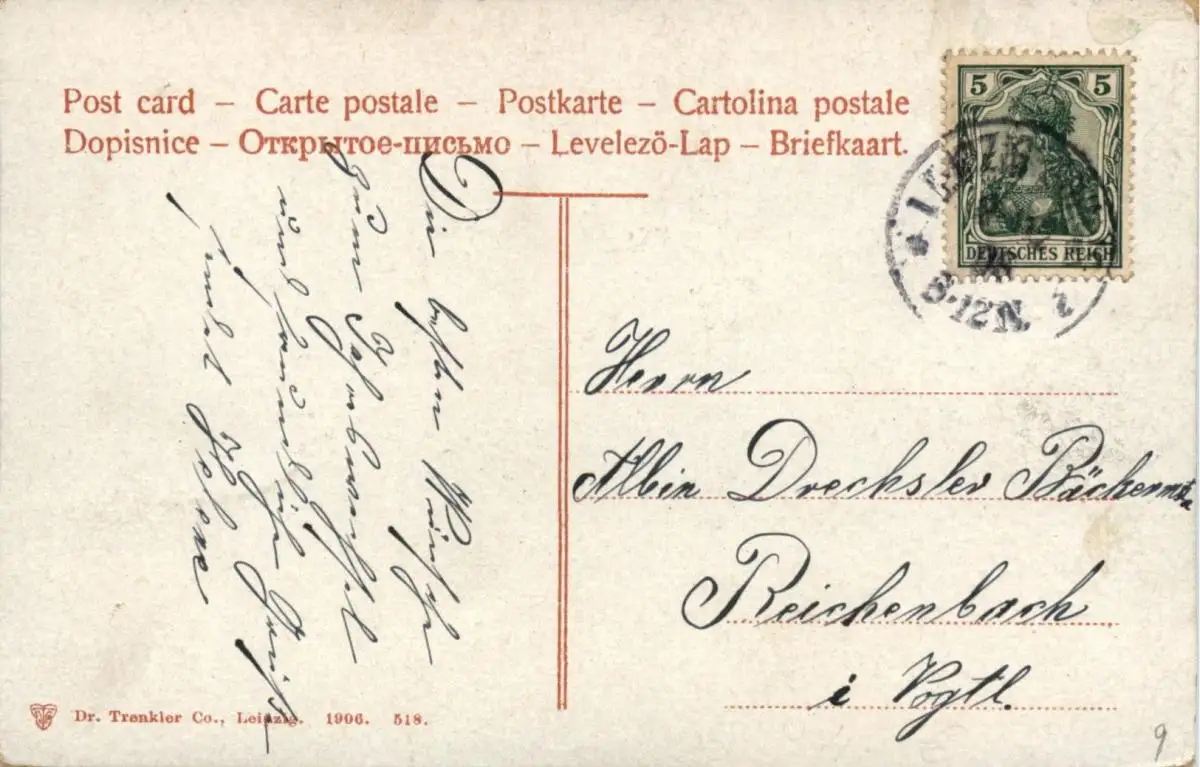 Post card – Carte postale – Postkarte – Cartolina postale
Dopisnice – Открытое-письмо – Levelező-Lap – Briefkaart.
5 5
DEUTSCHES REICH
8-12N.
Die besten Wünsche
zum Jahreswechsel
und freundliche Grüße
sendet Helene
Herrn
Albin Drechsler Bäckermstr
Reichenbach
i Vogtl.
Dr. Trenkler Co., Leipzig. 1906. 518.
9